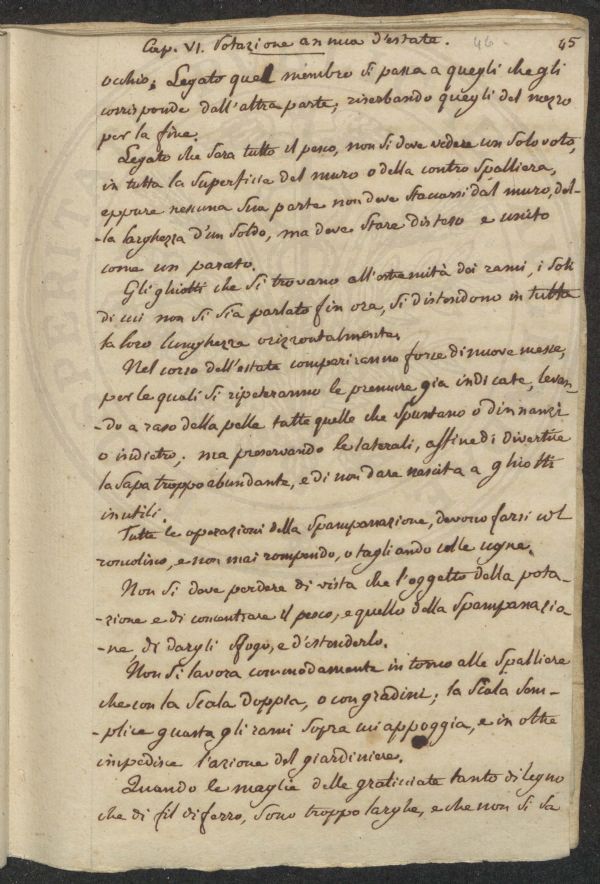 Cap. VI. Potazione annua d'estate. 46 45
occhio; Legato quel membro si passa a quegli che gli
corrisponde dall'altra parte; riserbando quegli del mezzo
per la fine.
Legato che sara tutto il pesco, non si deve vedere un solo voto,
in tutta la superficie del muro o della contro spalliera,
eppure nessuna sua parte non deve staccarsi dal muro, del-
-la larghezza d'un soldo, ma deve stare disteso e unito
come un parato.
Gli ghiotti che si trovano all'estremità dei rami, i soli
di cui non si sia parlato fin ora, si distendono in tutta
la loro lunghezza orizzontalmente.
Nel corso dell'estate compariranno forse di nuove messe,
per le quali si ripeteranno le premure gia indicate, levan-
-do a raso della pelle tutte quelle che spuntano o dinnanzi
o indietro; ma preservando le laterali, affine di divertire
la sapa troppo abundante, e di non dare nascita a ghiotti
inutili.
Tutte le operazioni della spampanazione, devono farsi col
roncolino, e non mai rompendo, o tagliando colle ugne.
Non si deve perdere di vista che l'oggetto della pota-
-zione e di concentrare il pesco, e quello della spampanazio-
-ne, di dargli sfogo, e d'estenderlo.
Non si lavora commodamente intorno alle spalliere
che con la scala doppia, o con gradini; la scala sem-
-plice guasta gli rami sopra cui appoggia, e in oltre
impedisce l'azione del giardiniere.
Quando le maglie delle graticciate tanto di legno
che di fil di ferro, sono troppo larghe, e che non si sa